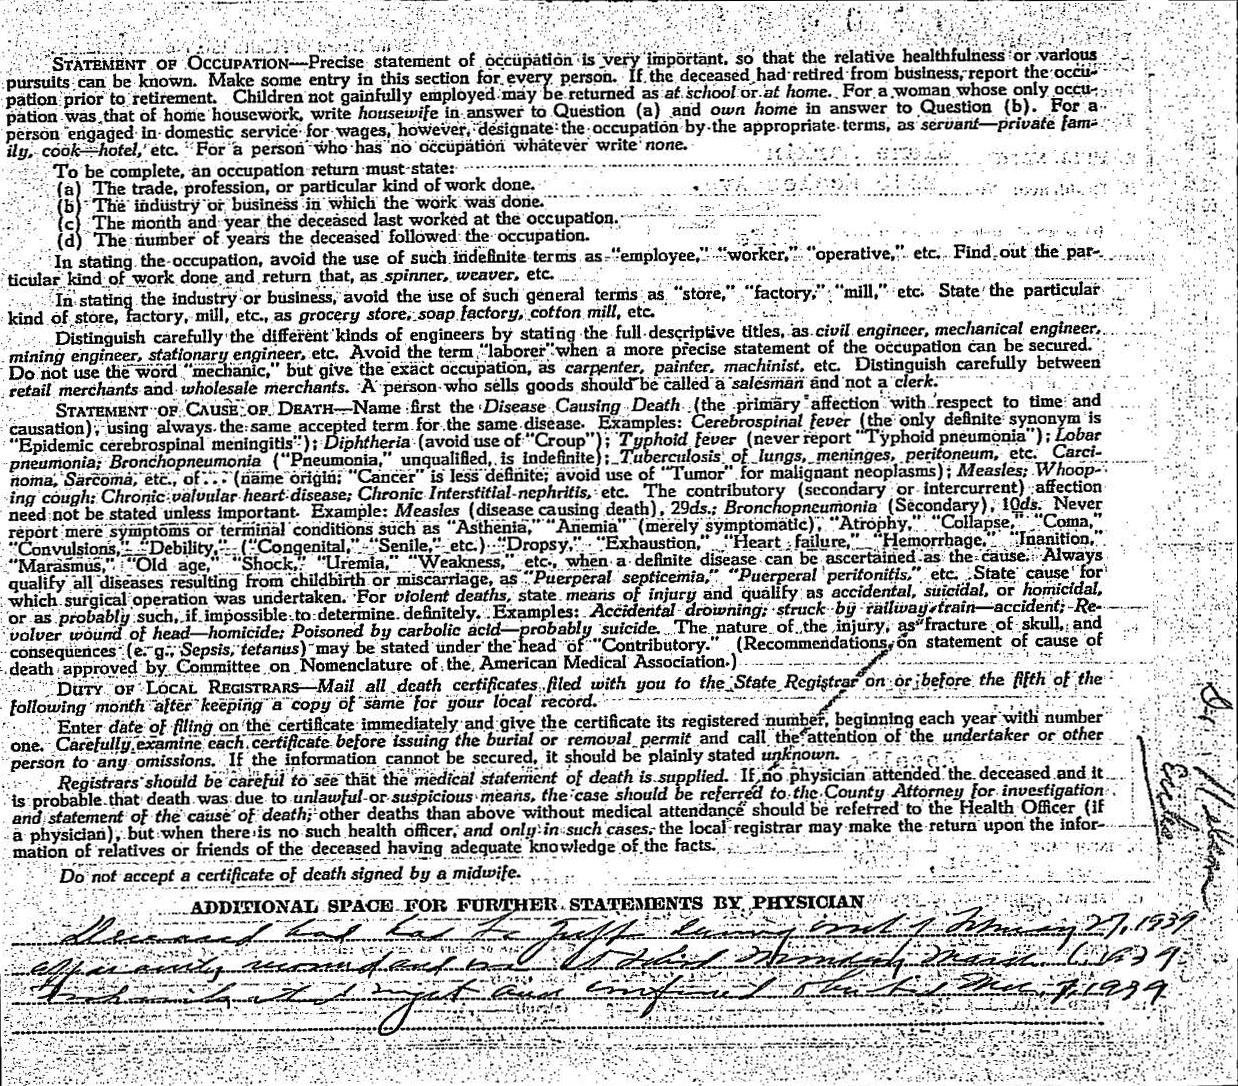 STATEMENT OF OCCUPATION—Precise statement of occupation is very important, so that the relative healthfulness or various
pursuits can be known. Make some entry in this section for every person. If the deceased had retired from business, report the occu-
pation prior to retirement. Children not gainfully employed may be returned as at school or at home. For a woman whose only occu-
pation was that of home housework, write housewife in answer to Question (a) and own home in answer to Question (b). For a
person engaged in domestic service for wages, however, designate the occupation by the appropriate terms, as servant—private fam-
ily, cook—hotel, etc. For a person who has no occupation whatever write none.
To be complete, an occupation return must state:
(a) The trade, profession, or particular kind of work done.
(b) The industry or business in which the work was done.
(c) The month and year the deceased last worked at the occupation.
(d) The number of years the deceased followed the occupation.
In stating the occupation, avoid the use of such indefinite terms as "employee," "worker," "operative," etc. Find out the par-
ticular kind of work done and return that, as spinner, weaver, etc.
In stating the industry or business, avoid the use of such general terms as "store," "factory," "mill," etc. State the particular
kind of store, factory, mill, etc., as grocery store, soap factory, cotton mill, etc.
Distinguish carefully the different kinds of engineers by stating the full descriptive titles, as civil engineer, mechanical engineer,
mining engineer, stationary engineer, etc. Avoid the term "laborer" when a more precise statement of the occupation can be secured.
Do not use the word "mechanic," but give the exact occupation, as carpenter, painter, machinist, etc. Distinguish carefully between
retail merchants and wholesale merchants. A person who sells goods should be called a salesman and not a clerk.
STATEMENT OF CAUSE OF DEATH—Name first the Disease Causing Death (the primary affection with respect to time and
causation), using always the same accepted term for the same disease. Examples: Cerebrospinal fever (the only definite synonym is
"Epidemic cerebrospinal meningitis"); Diphtheria (avoid use of "Croup"); Typhoid fever (never report "Typhoid pneumonia"); Lobar
pneumonia; Bronchopneumonia ("Pneumonia," unqualified, is indefinite); Tuberculosis of lungs, meninges, peritoneum, etc. Carci-
noma, Sarcoma, etc., of... (name origin; "Cancer" is less definite; avoid use of "Tumor" for malignant neoplasms); Measles; Whoop-
ing cough; Chronic valvular heart disease; Chronic Interstitial nephritis, etc. The contributory (secondary or intercurrent) affection
need not be stated unless important. Example: Measles (disease causing death), 29ds.; Bronchopneumonia (Secondary), 10ds. Never
report mere symptoms or terminal conditions such as "Asthenia," "Anemia" (merely symptomatic), "Atrophy," "Collapse," "Coma,"
"Convulsions," "Debility," ("Congenital," "Senile," etc.) "Dropsy," "Exhaustion," "Heart failure," "Hemorrhage," "Inanition,"
"Marasmus," "Old age," "Shock," "Uremia," "Weakness," etc., when a definite disease can be ascertained as the cause. Always
qualify all diseases resulting from childbirth or miscarriage, as "Puerperal septicemia," "Puerperal peritonitis," etc. State cause for
which surgical operation was undertaken. For violent deaths, state means of injury and qualify as accidental, suicidal, or homicidal,
or as probably such, if impossible to determine definitely. Examples: Accidental drowning; struck by railway train—accident; Re-
volver wound of head—homicide; Poisoned by carbolic acid—probably suicide. The nature of the injury, as fracture of skull, and
consequences (e. g., Sepsis, tetanus) may be stated under the head of "Contributory." (Recommendations on statement of cause of
death approved by Committee on Nomenclature of the American Medical Association.)
DUTY OF LOCAL REGISTRARS—Mail all death certificates filed with you to the State Registrar on or before the fifth of the
following month after keeping a copy of same for your local record.
Enter date of filing on the certificate immediately and give the certificate its registered number, beginning each year with number
one. Carefully examine each certificate before issuing the burial or removal permit and call the attention of the undertaker or other
person to any omissions. If the information cannot be secured, it should be plainly stated unknown.
Registrars should be careful to see that the medical statement of death is supplied. If no physician attended the deceased and it
is probable that death was due to unlawful or suspicious means, the case should be referred to the County Attorney for investigation
and statement of the cause of death; other deaths than above without medical attendance should be referred to the Health Officer (if
a physician), but when there is no such health officer, and only in such cases, the local registrar may make the return upon the infor-
mation of relatives or friends of the deceased having adequate knowledge of the facts.
Do not accept a certificate of death signed by a midwife.
ADDITIONAL SPACE FOR FURTHER STATEMENTS BY PHYSICIAN
Deceased had during of February 27, 1939
apparently Monday March 1939
night and 1939